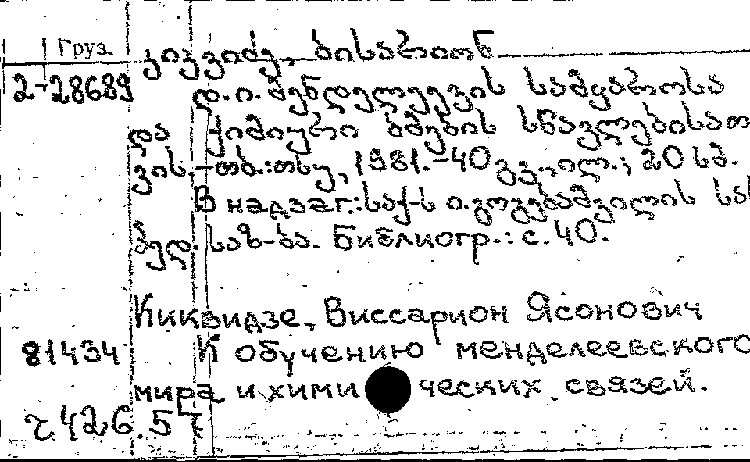 Груз.
კიკვიძე, ბისარიონ
2-28689 დ.ი. მენდელეევის სამყაროსა
და ქიმიური ბმების სწავლებისათ
ვის. -თბ.: თსუ, 1981. -40 გვ., ილ.; 20 სმ.
В надзаг.: საქ-ს ი. გოგებაშვილის სახ
პედ. საზ-ბა. Библиогр.: с. 40.
Киквидзе, Виссарион Ясонович
81434 К обучению менделеевского
мира и химических связей.
426.57